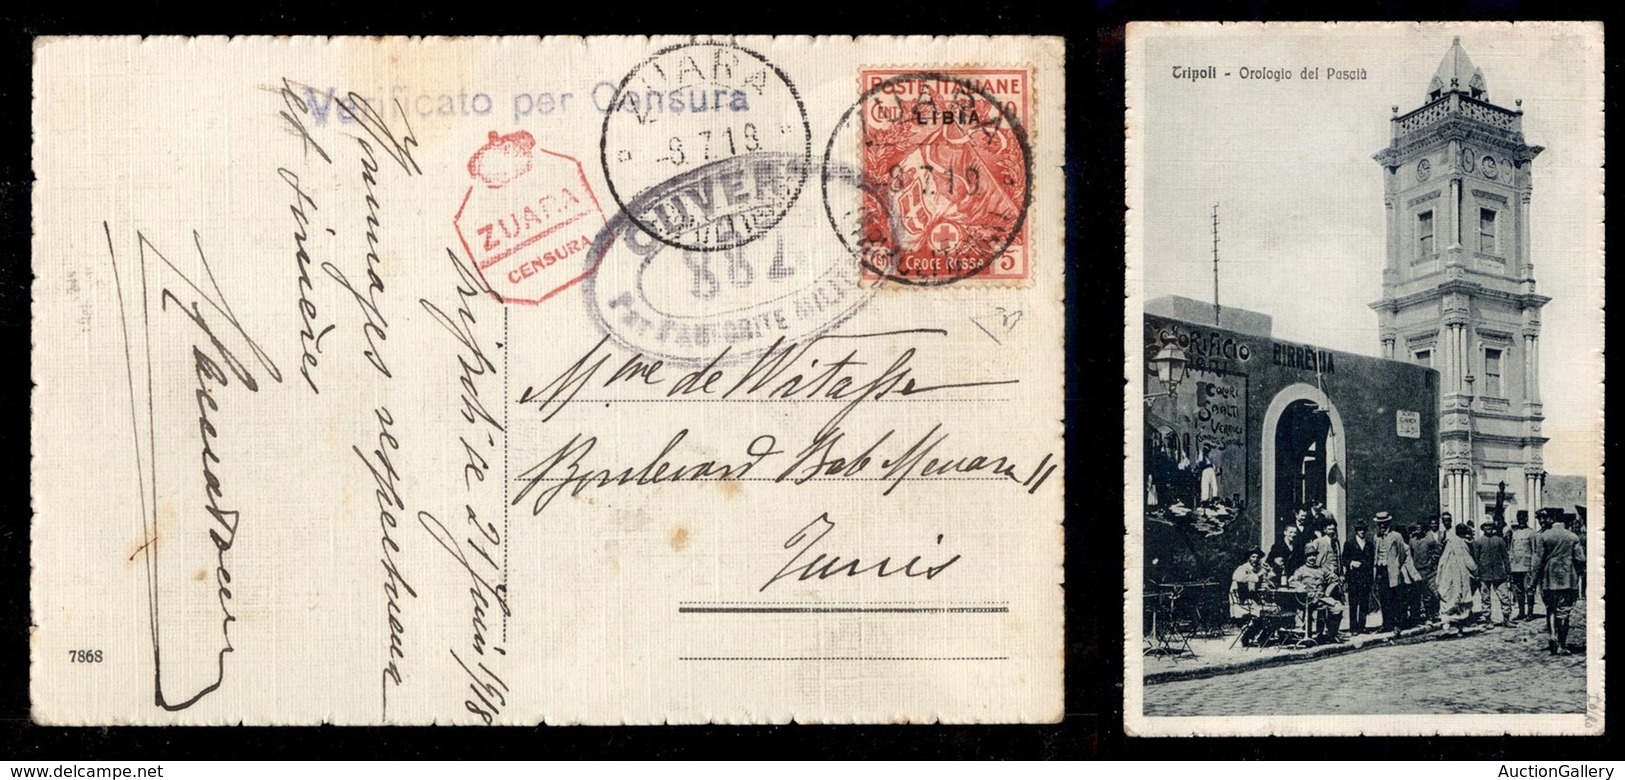 Verificato per Censura
ZUARA
-8.7.18
ZUARA
CENSURA
OUVERT
882
Par l'AUTORITE MILIT
POSTE ITALIANE
CENT 10
LIBIA
ZUARA
-8.7.18
CENT CROCE ROSSA 5
Hommages respectueux
et sincères
21 Juin 1918
Mme de Witasse
Boulevard Bab Menara 11
Tunis
7868
Tripoli - Orologio del Pascià
COLORIFICIO
BIRRERIA
COLORI
SMALTI
VERNICI
AuctionGallery